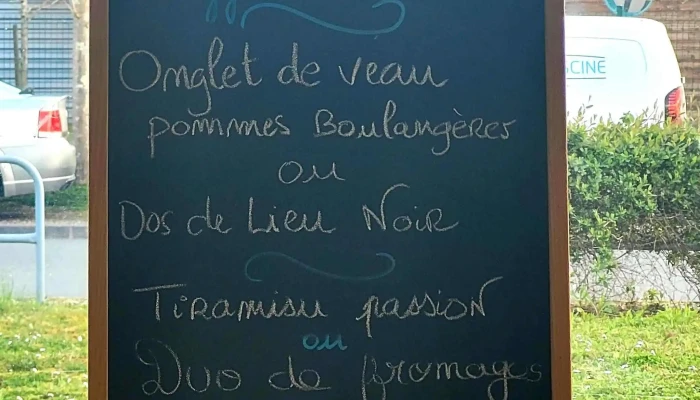 Onglet de veau
pommes Boulangères
ou
Dos de Lieu Noir
Tiramisu passion
ou
Duo de fromages